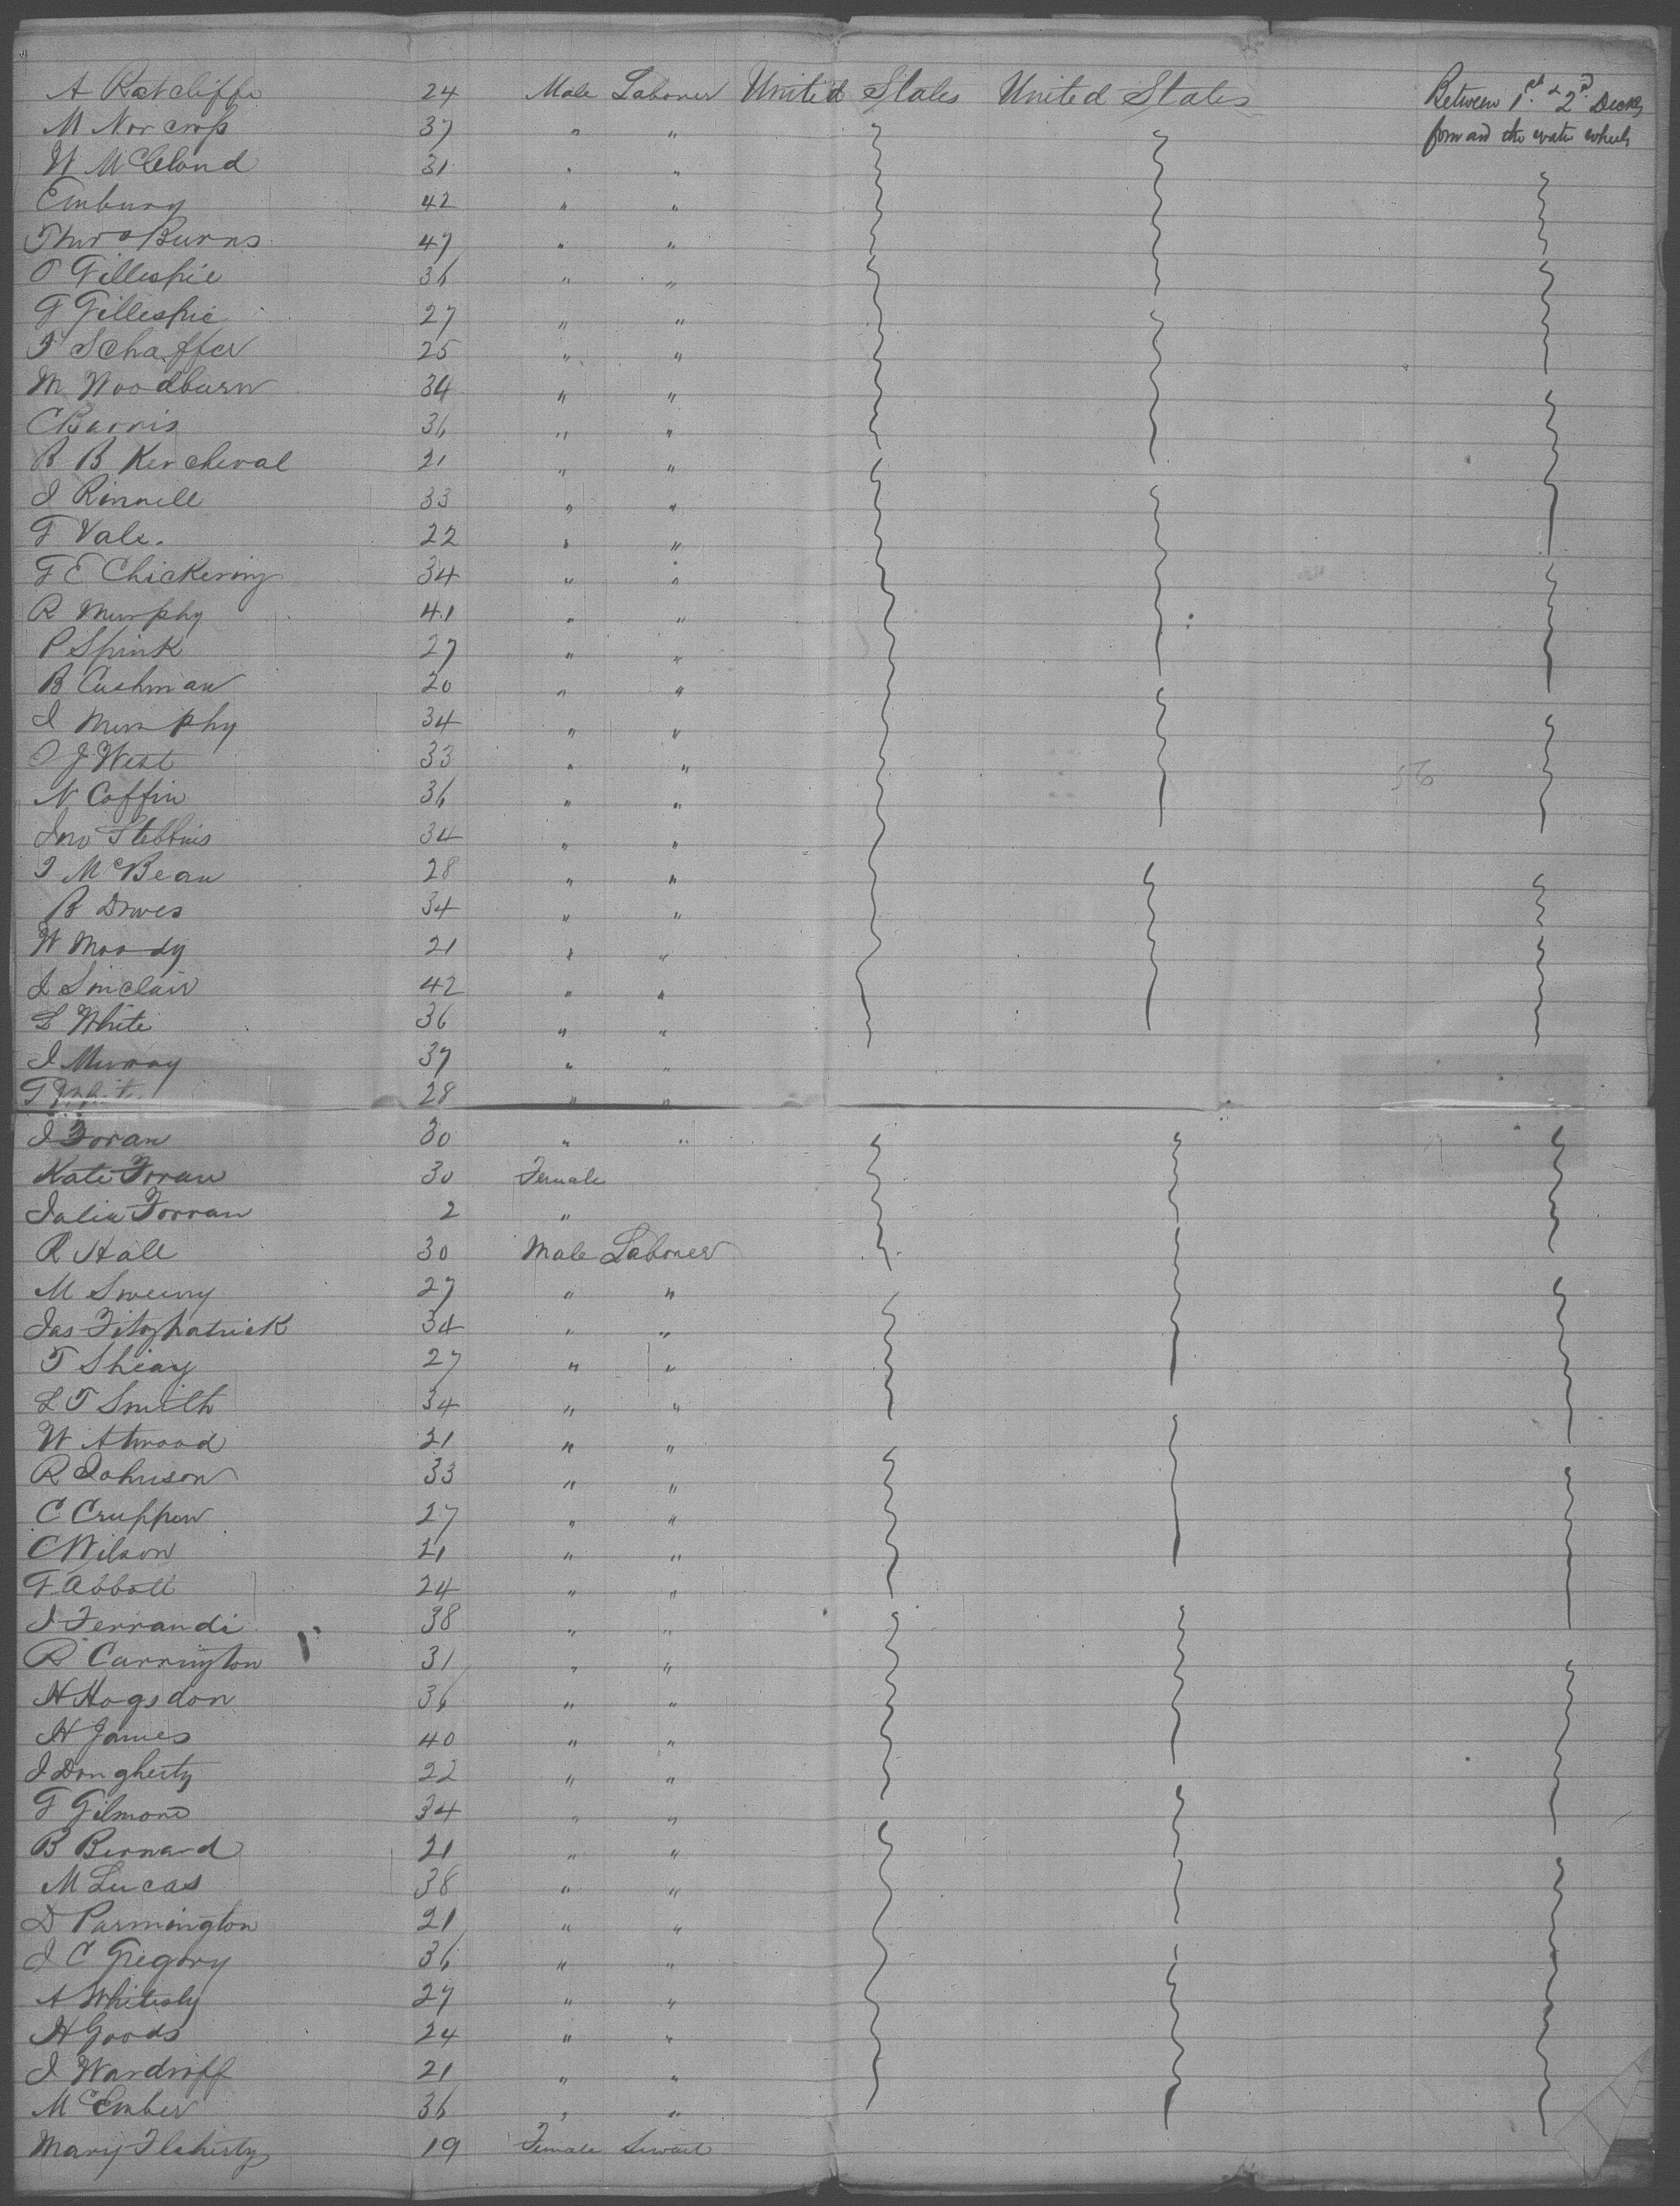 A Ratcliffe 24 Male Laborer United States United States Between 1st & 2d Decks
M Norcross 37 " " forward the water wheels
W McCleland 31 " "
Embury 42 " "
Thos Burns 47 " "
O Gillespie 36 " "
G Gillespie 27 " "
T Schaffer 25 " "
M Woodburn 34 " "
C Barris 36 " "
B B Kercheval 21 " "
J Rinnell 33 " "
F Vale. 22 " "
F E Chickering 34 " "
R Murphy 41 " "
P Spink 27 " "
B Cushman 20 " "
J Murphy 34 " "
J West 33 " "
56
N Coffin 36 " "
Jno Stebbins 34 " "
T McBean 28 " "
B Drwes 34 " "
W Moody 21 " "
J Sinclair 42 " "
S White 36 " "
J Murray 37 " "
T White 28 " "
J Foran 30 " "
Kate Foran 30 Female
Julia Forran 2 "
R Hall 30 Male Laborer
M Sweeny 27 " "
Jas Fitzphatrick 34 " "
T Sheay 27 " "
L T Smith 34 " "
W Atwood 21 " "
R Johnson 33 " "
C Cruppen 27 " "
C Wilson 21 " "
F Abbott 24 " "
J Ferrandi 38 " "
R Carrington 31 " "
H Hogsdon 36 " "
H James 40 " "
J Dougherty 22 " "
F Gilmore 34 " "
B Bernard 21 " "
M Lucas 38 " "
D Parmington 21 " "
J C Gregory 36 " "
A Whitesly 27 " "
H Goods 24 " "
J Wardroff 21 " "
McEmber 36 " "
Mary Flaherty 19 Female Servant